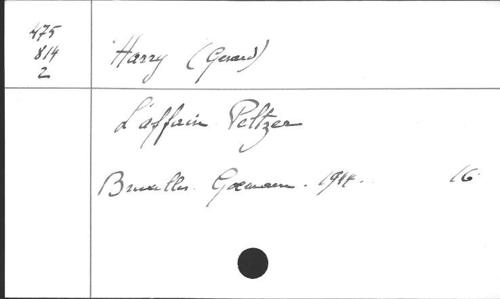 475
814
2
Harry (Gérard)
L'affaire Peltzer
Bruxelles. Goemaere. 1944. 16